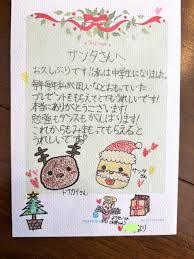 サンタさんへ
お久しぶりです！私は中学生になりました。
毎年毎年私が欲しいなとおもっていた
プレゼントをもらえてとてもうれしいです！
本当にありがとうございます！
勉強もダンスもがんばります！
これからもみまもってもらえると
うれしいです！
トナカイさん
サンタさん
より